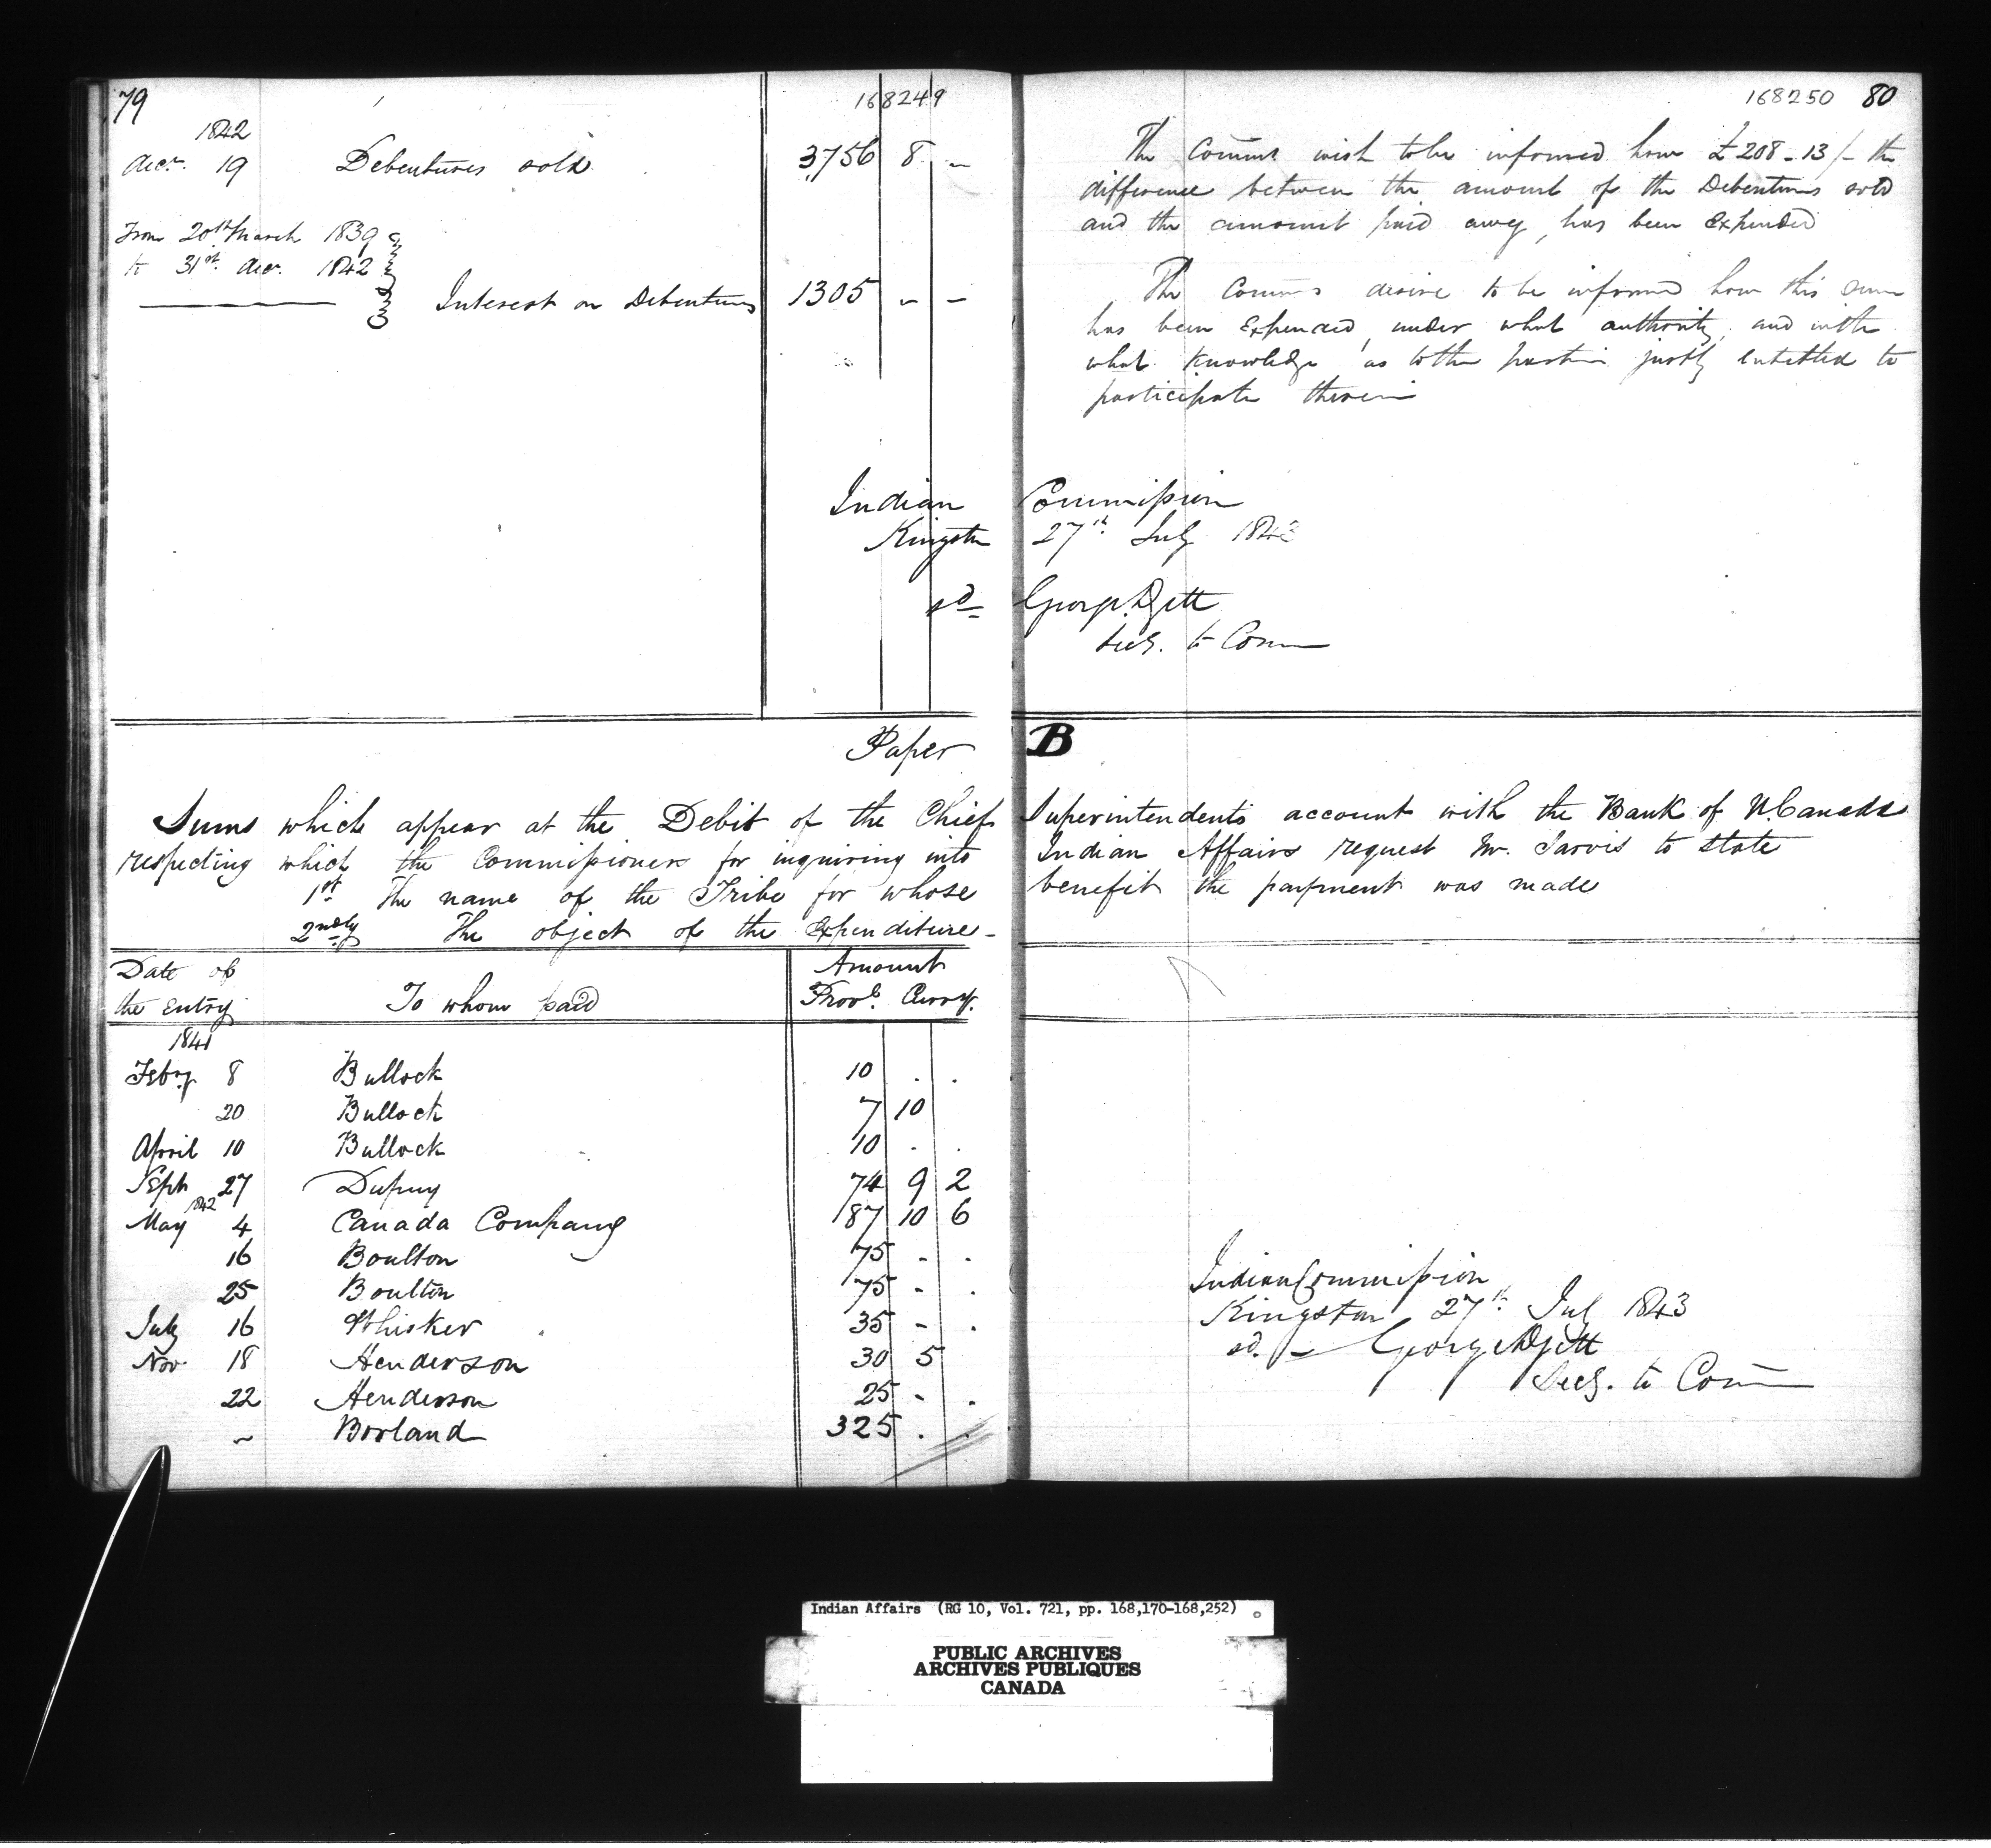 79
168249
1842
Decr. 19 Debentures sold 3756 8 -
From 20th March 1839
to 31st. Decr. 1842
Interest on Debentures 1305 - -
168250 80
The Comms wish to be informed how £208-13/- the
difference between the amount of the Debentures sold
and the amount paid away, has been Expended
The Comms desire to be informed how this sum
has been Expended, under what authority, and with
what Knowledge as to the parties justly entitled to
participate therein
Indian Commission
Kingston 27th. July 1843
sd- George
Secy. to Com
Paper B
Sums which appear at the Debit of the Chief Superintendents account with the Bank of U. Canada
respecting which the Commissioners for inquiring into Indian Affairs request Mr. Jarvis to state
1st The name of the Tribe for whose benefit the payment was made
2ndly The object of the Expenditure-
Date of
the Entry
To whom paid
Amount
Provl. Curry.
1841
Feby 8 Bullock 10 . .
20 Bullock 7 10
April 10 Bullock 10 . .
Sept 27 Dupuy 74 9 2
1842
May 4 Canada Company 187 10 6
16 Boulton 75 - .
25 Boulton 75 - .
July 16 Whisker 35 - .
Nov. 18 Henderson 30 5
22 Henderson 25 - .
~ Borland 325 . .
Indian Commission
Kingston 27th. July 1843
sd. - George
Secy. to Com
Indian Affairs (RG 10, Vol. 721, pp. 168,170-168,252)
PUBLIC ARCHIVES
ARCHIVES PUBLIQUES
CANADA